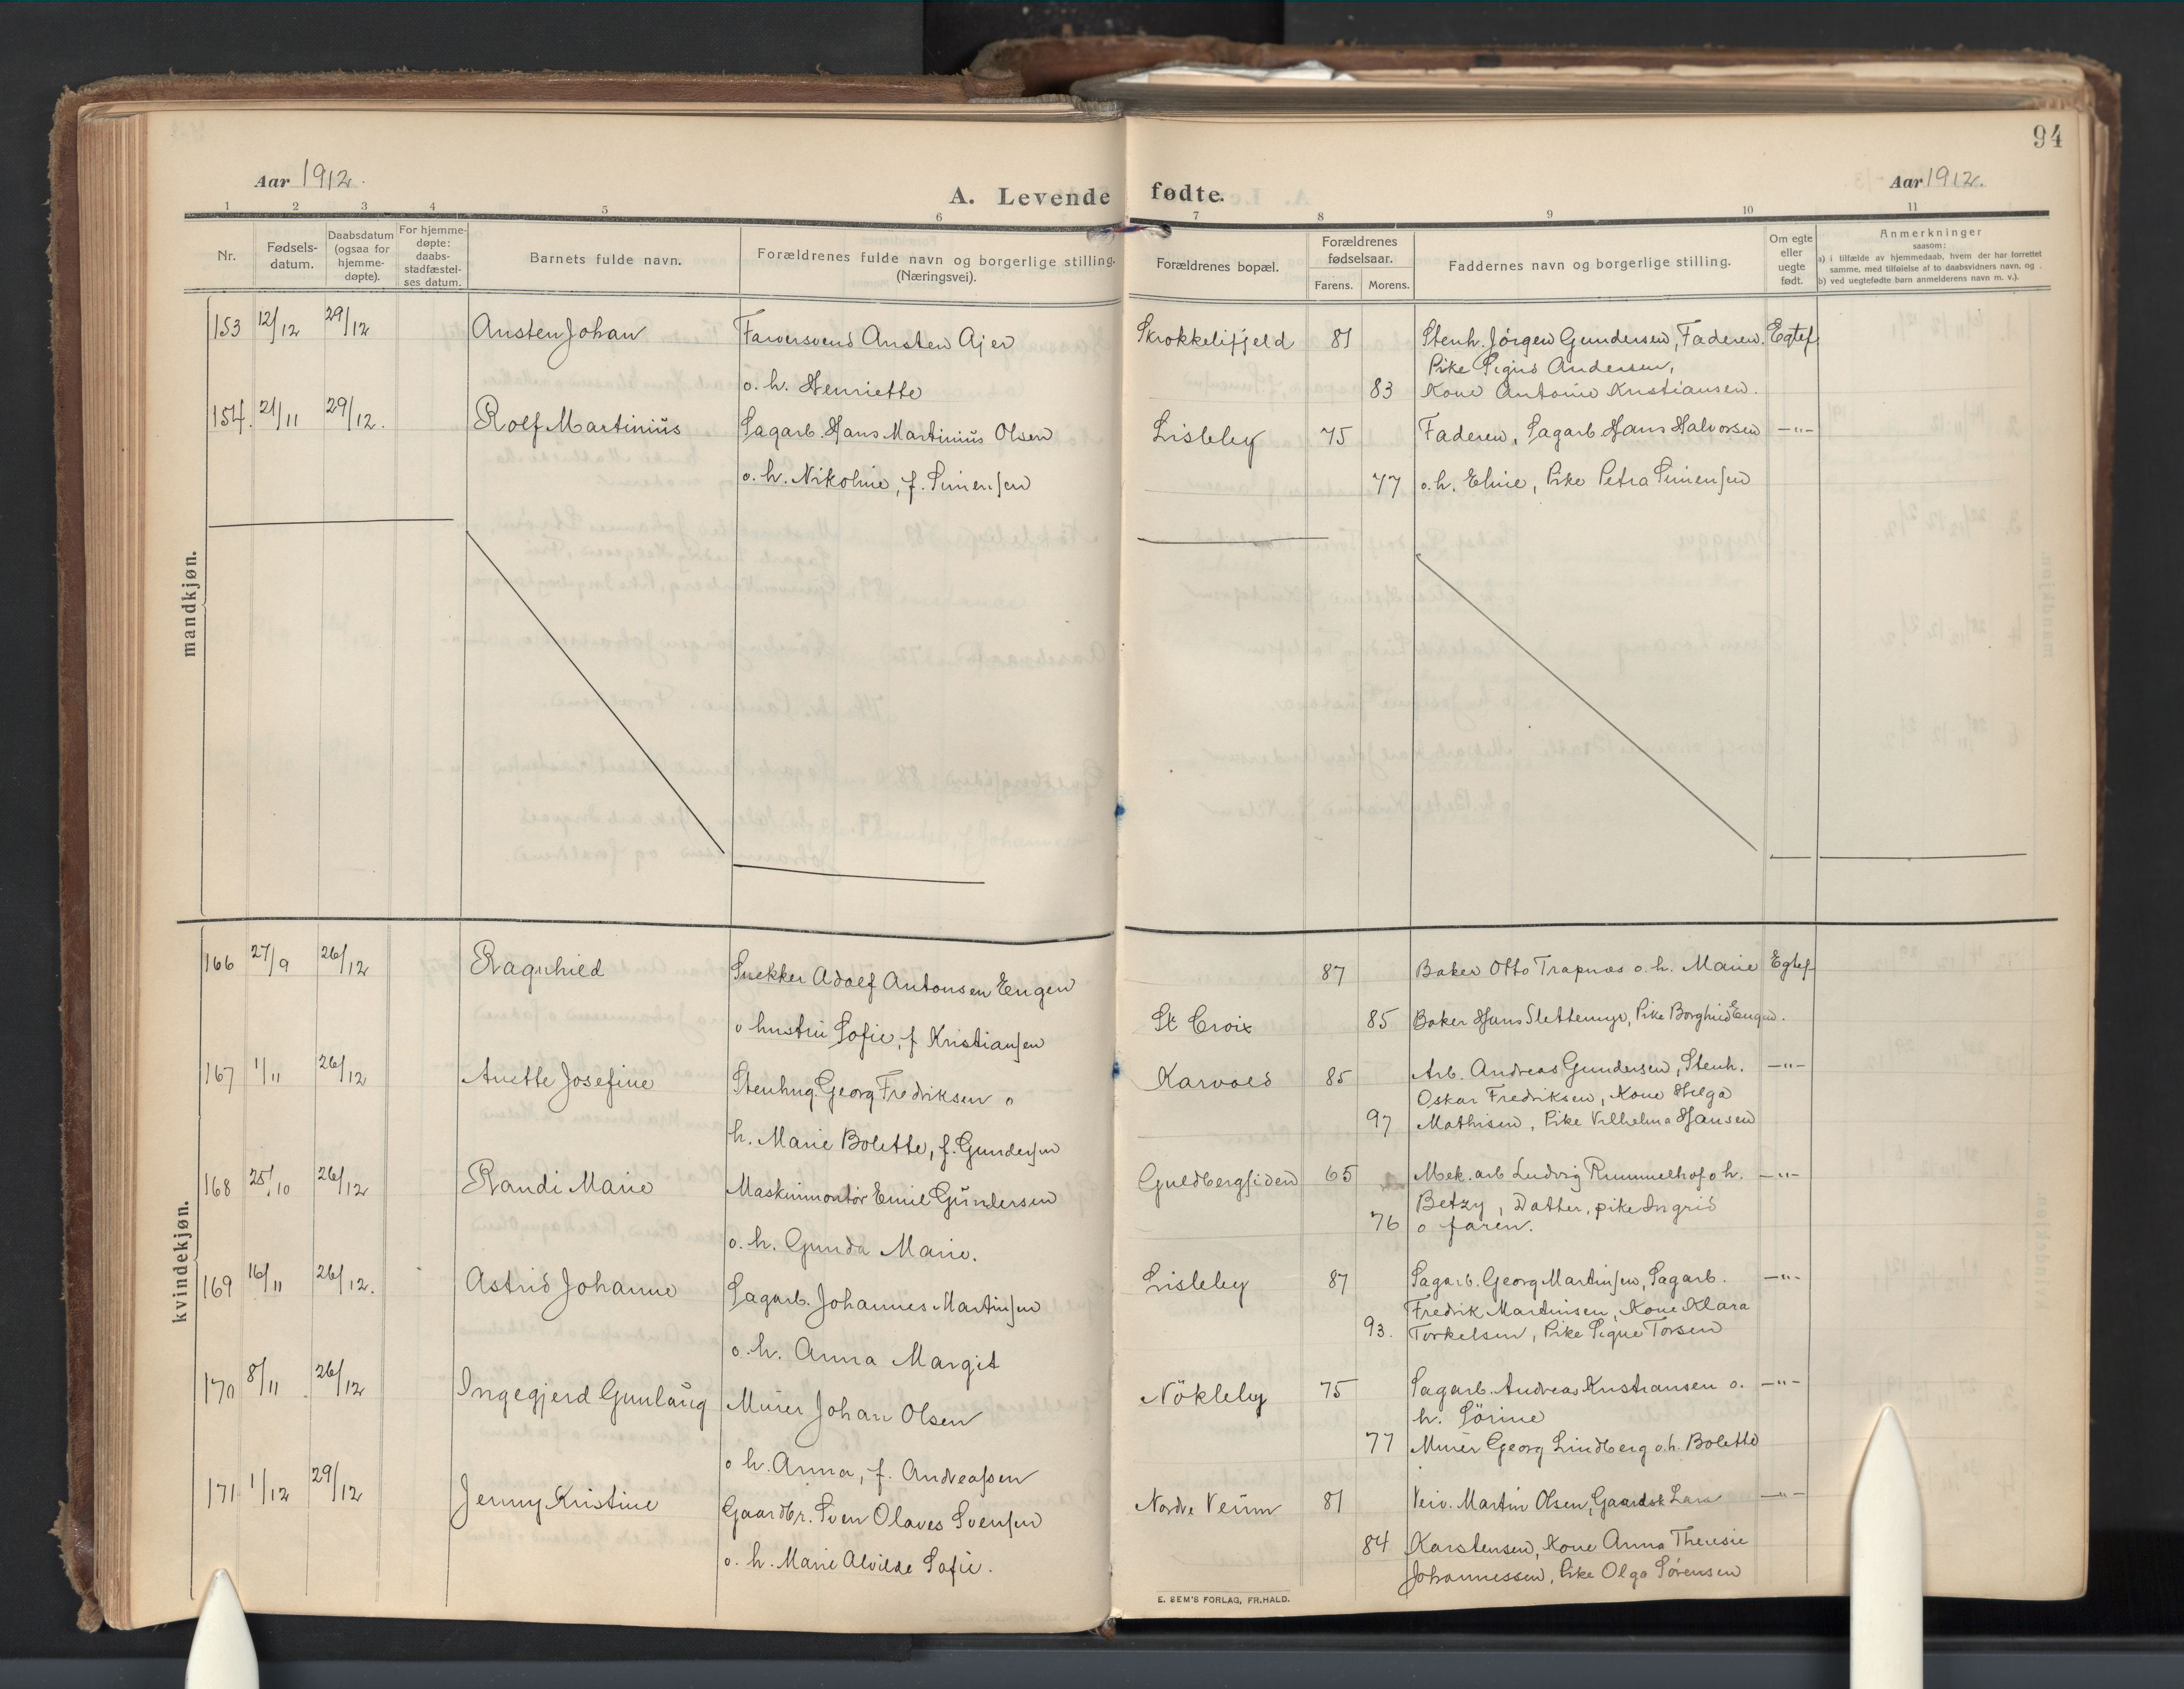 94
Aar 1912.
A. Levende fødte.
Aar 1912.
1 2 3 4 5 6 7 8 9 10 11
Nr.
Fødsels-
datum.
Daabsdatum
(ogsaa for
hjemme-
døpte).
For hjemme-
døpte:
daabs-
stadfæstel-
ses datum.
Barnets fulde navn.
Forældrenes fulde navn og borgerlige stilling.
(Næringsvei).
Forældrenes bopæl.
Forældrenes
fødselsaar.
Farens. Morens.
Faddernes navn og borgerlige stilling.
Om egte
eller
uegte
født.
Anmerkninger
saasom:
a) i tilfælde av hjemmedaab, hvem der har forrettet
samme, med tilføielse af to daabsvidners navn, og
b) ved uegtefødte børn anmelderens navn m. v.).
mandkjøn.
153 12/12 29/12 Ansten Johan Farversvend Ansten Ajer Skrokkelifjeld 81 Stenh. Jórgen Gundersen, Faderen. Egtef.
Pike Signe Andersen,
o. h. Henriette 83 Kone Antonie Kristiansen.
154. 21/11 29/12. Rolf Martinius Sagarb. Hans Martinius Olsen Lisleby 75 Faderen, Sagarb Hans Halvorsen —"—
o. h. Nikoline, f. Simensen 77 o. h. Eline, Pike Petra Simensen
kvindekjøn.
166 27/9 26/12 Ragnhild Snekker Adolf Antonsen Engen 87 Baker Otto Trapnæs o. h. Marie Egtef
o hustru Sofie, f Kristiansen St Croix 85 Baker Hans Slettemyr, Pike Borghild Engen.
167 1/11 26/12 Anette Josefine Stenhug. Georg Fredriksen o Karvold 85 Arb. Andreas Gundersen, Stenh. —"—
Oskar Fredriksen, Kone Helga
h. Marie Bolette, f. Gundersen 97 Mathisen, Pike Vilhelma Hansen
168 25/10 26/12 Randi Marie Maskinmontör Emil Gundersen Guldbergsiden 65 Mek. arb Ludvig Rummelhof o h. —"—
Betzy, Datter, pike Ingrid
o. h. Gunda Marie. 76 o faren.
169 16/11 26/12. Astrid Johanne Sagarb. Johannes Martinsen Lisleby 87 Sagarb. Georg Martinsen, Sagarb. —"—
Fredrik Martinsen, Kone Klara
o. h. Anna Margit 93. Torkelsen, Pike Signe Torsen
170 8/11 26/12 Ingegjerd Gunlaug Murer Johan Olsen Nökleby 75 Sagarb. Andreas Kristiansen o. —"—
h. Sörine
o h. Anna, f. Andreassen 77 Murer Georg Lindberg o. h. Bolette
171 1/12 29/12 Jenny Kristine Gaardbr. Sven Olaves Svensen Nordre Verum 81 Martin Olsen, Gaardsk Lars —"—
o. h. Marie Alvilde Sofie. 84 Karstensen, Kone Anna Theresie
Johannessen, Pike Olga Sörensen
E. SEM'S FORLAG, FR.HALD.